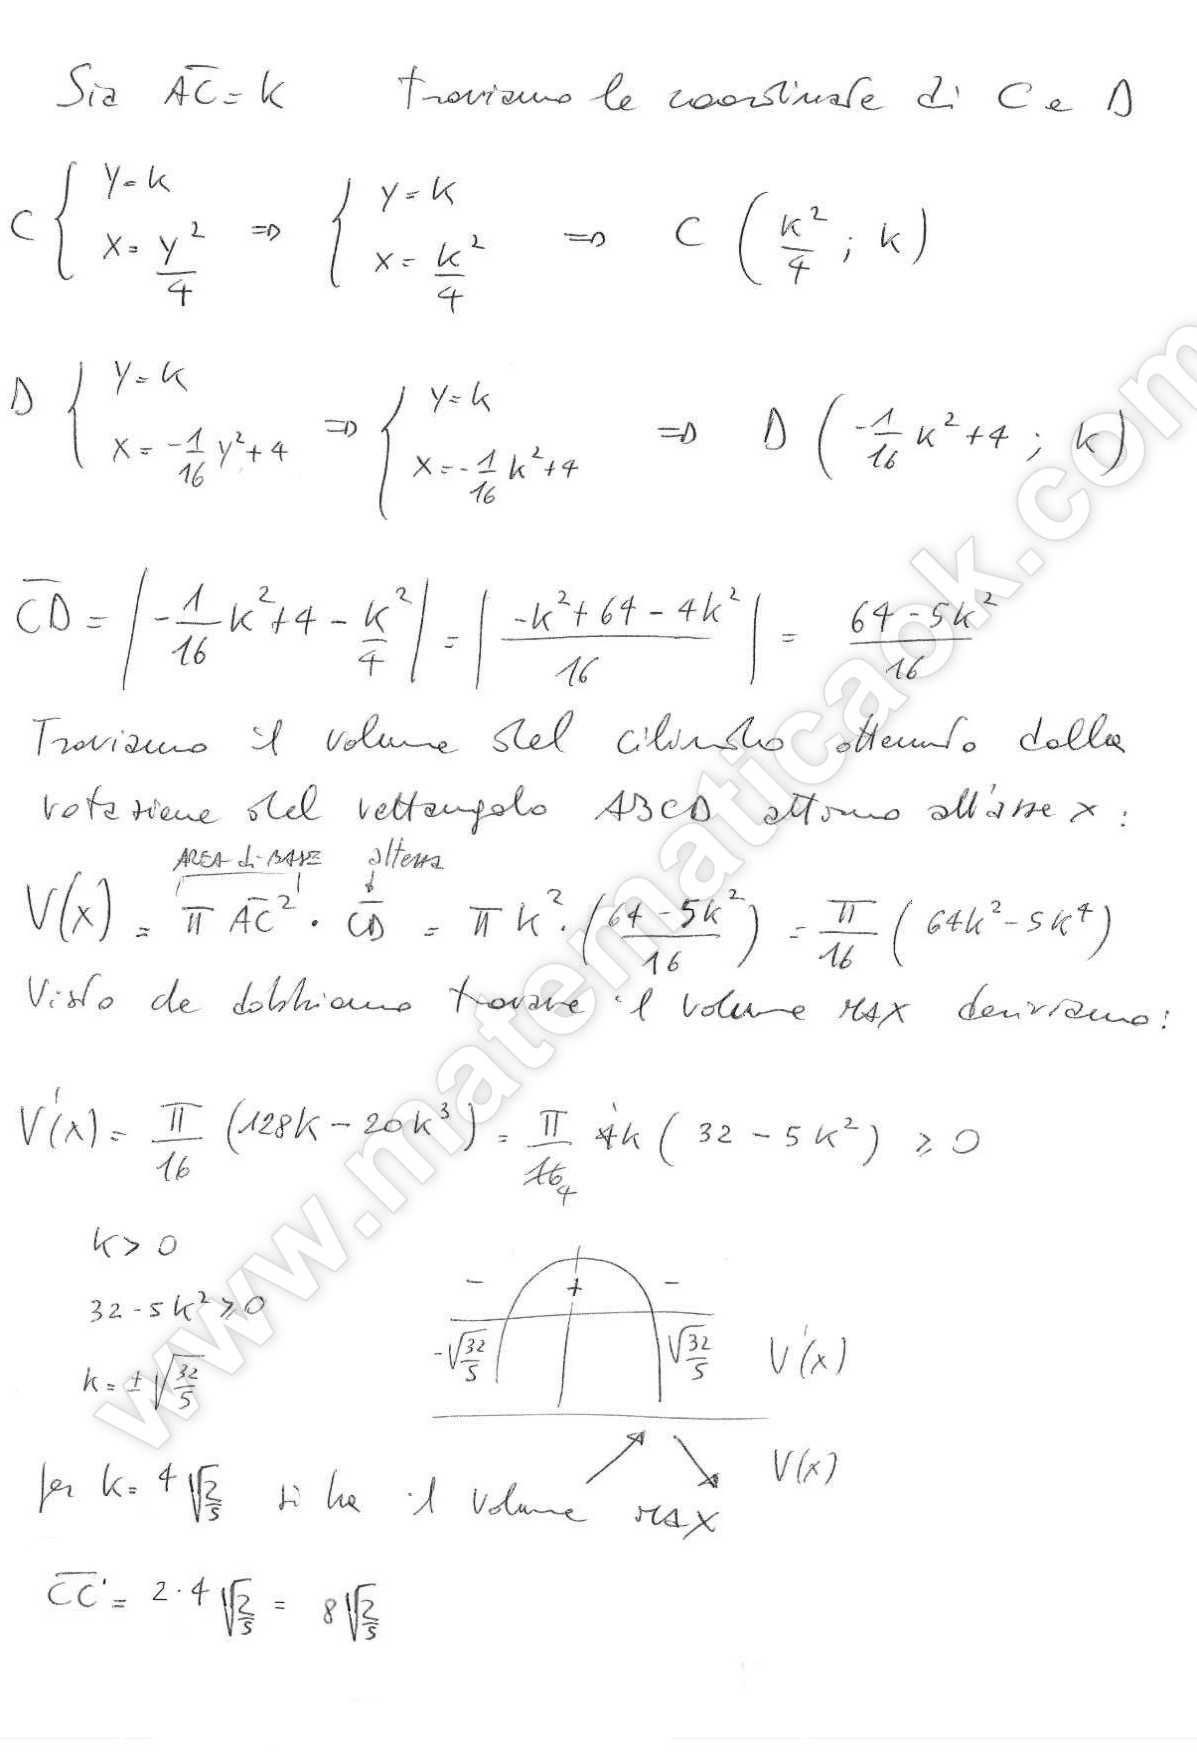 Sia AC = k troviamo le coordinate di C e D
C { y = k x = y²/4 => { y = k x = k²/4 => C (k²/4 ; k)
D { y = k x = -1/16 y² + 4 => { y = k x = -1/16 k² + 4 => D (-1/16 k² + 4 ; k)
CD = |-1/16 k² + 4 - k²/4| = |(-k² + 64 - 4k²)/16| = (64 - 5k²)/16
Troviamo il volume del cilindro ottenuto dalla
rotazione del rettangolo ABCD attorno all'asse x :
AREA di BASE altezza
V(x) = π AC² · CD = π k² · ((64 - 5k²)/16) = π/16 (64k² - 5k⁴)
Visto che dobbiamo trovare il volume MAX deriviamo :
V'(x) = π/16 (128k - 20k³) = π/16 4k (32 - 5k²) ≥ 0
4
k > 0
32 - 5k² ≥ 0
k = ± √(32/5)
- + -
-√(32/5) √(32/5) V'(x)
V(x)
per k = 4 √(2/5) si ha il volume MAX
CC' = 2 · 4 √(2/5) = 8 √(2/5)
www.matematicaok.com